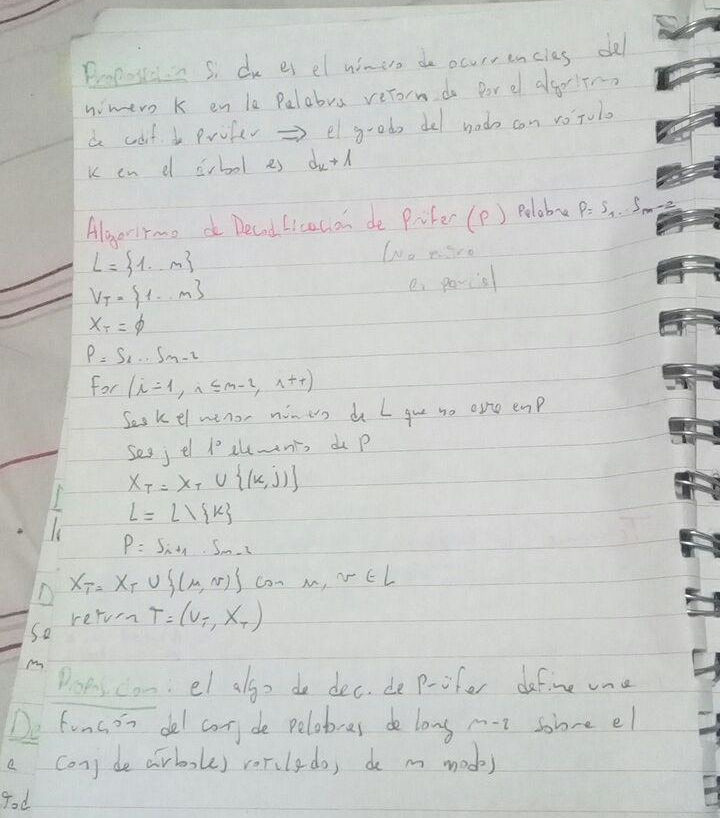 Proposición Si dk es el número de ocurrencias del
número K en la Palabra retornada por el algoritmo
de codif. de Prüfer ⟹ el grado del nodo con rótulo
K en el árbol es dk+1
Algoritmo de Decodificación de Prüfer (P) Palabra P= S1..Sm-2
L = {1..m}
(No entra
VT = {1..m}
en parcial
XT = ∅
P = S1..Sm-2
For (i=1, i≤m-2, i++)
Sea K el menor número de L que no este en P
Sea j el 1º elemento de P
XT = XT ∪ {(K,j)}
L = L\{K}
P = Si+1..Sm-2
XT = XT ∪ {(u,v)} con u, v ∈ L
return T=(VT, XT)
Proposición: el algo de dec. de Prüfer define una
función del conj de palabras de long m-2 sobre el
conj de árboles rotulados de m nodos